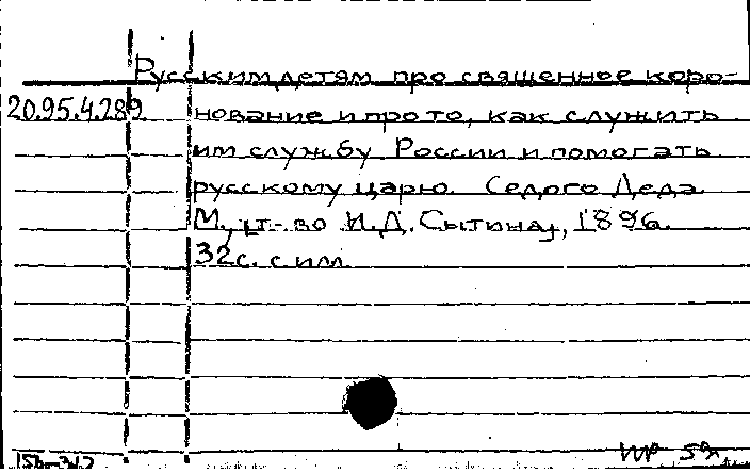 Русским детям про священное коро-
20.95.4.289 нование и про то, как служить
им службу России и помогать
русскому царю. Седого Деда
М., т-во И.Д. Сытина, 1896.
32с. с илл.